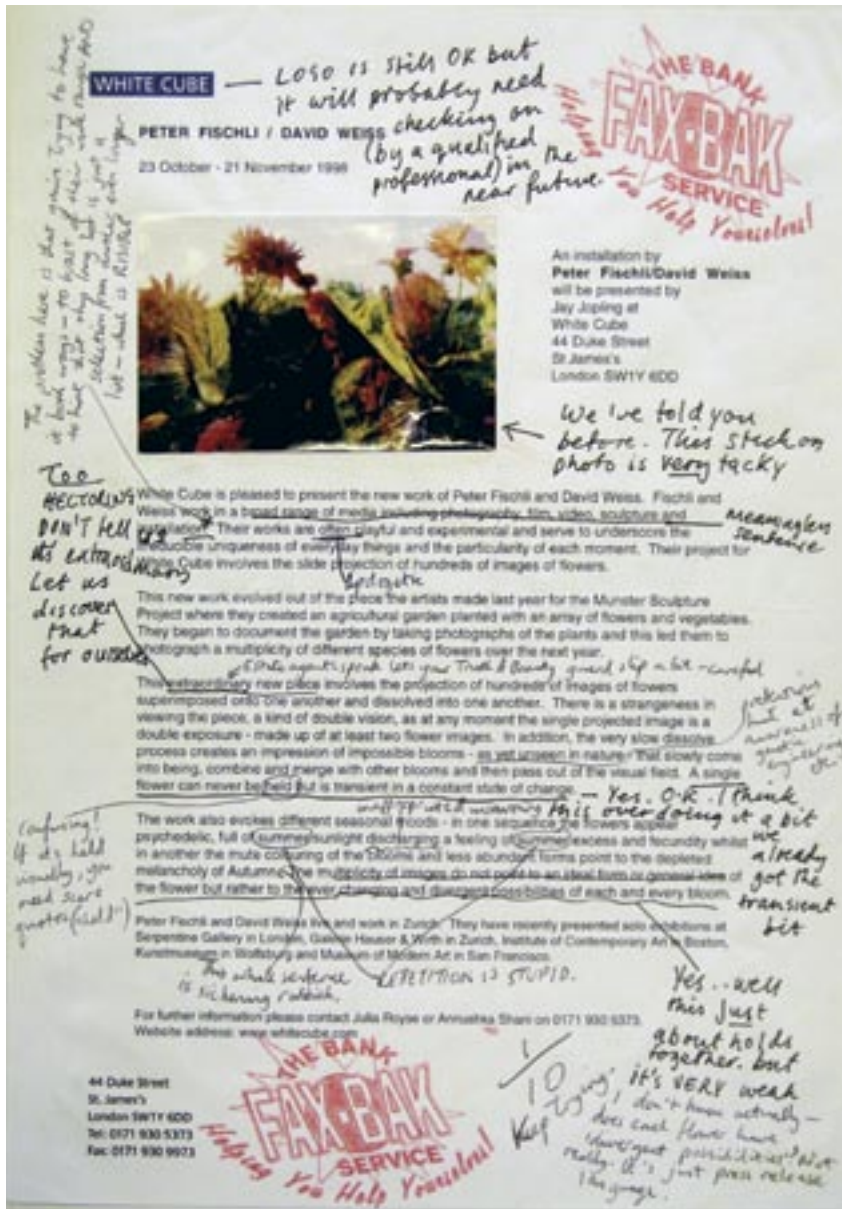 WHITE CUBE
LOGO is still OK but
it will probably need
checking on
(by a qualified
professional) in the
near future
THE BANK
FAX-BAK
SERVICE
Helping You Help Yourselves!
PETER FISCHLI / DAVID WEISS
23 October - 21 November 1998
The problem here is that you're trying to have
it both ways - to boast of their wide range AND
to hint that this long list is just a
selection from another even longer
list - which is
An installation by
Peter Fischli/David Weiss
will be presented by
Jay Jopling at
White Cube
44 Duke Street
St.James's
London SW1Y 6DD
We've told you
before. This stuck on
photo is very tacky
Too
HECTORING
DON'T tell us
it's extraordinary
Let us
discover
that
for ourselves
White Cube is pleased to present the new work of Peter Fischli and David Weiss. Fischli and
Weiss work in a broad range of media including photography, film, video, sculpture and
installation. Their works are often playful and experimental and serve to underscore the
irreducible uniqueness of everyday things and the particularity of each moment. Their project for
White Cube involves the slide projection of hundreds of images of flowers.
meaningless
sentence
apologetic
This new work evolved out of the piece the artists made last year for the Munster Sculpture
Project where they created an agricultural garden planted with an array of flowers and vegetables.
They began to document the garden by taking photographs of the plants and this led them to
photograph a multiplicity of different species of flowers over the next year.
Estate agent speak lets your Truth & Beauty guard slip a bit - careful
This extraordinary new piece involves the projection of hundreds of images of flowers
superimposed onto one another and dissolved into one another. There is a strangeness in
viewing the piece, a kind of double vision, as at any moment the single projected image is a
double exposure - made up of at least two flower images. In addition, the very slow dissolve
process creates an impression of impossible blooms - as yet unseen in nature - that slowly come
into being, combine and merge with other blooms and then pass out of the visual field. A single
flower can never be held but is transient in a constant state of change.
awareness of
genetic
engineering
etc.
Yes. O.K. I think
this is overdoing it a bit
we
already
got the
transient
bit
Confusing!
If it's held
visually, you
need scare
quotes
The work also evokes different seasonal moods - in one sequence the flowers appear
psychedelic, full of summer sunlight discharging a feeling of summer excess and fecundity whilst
in another the mute colouring of the blooms and less abundant forms point to the depleted
melancholy of Autumn. The multiplicity of images do not point to an ideal form or general idea of
the flower but rather to the ever changing and divergent possibilities of each and every bloom.
Peter Fischli and David Weiss live and work in Zurich. They have recently presented solo exhibitions at
Serpentine Gallery in London, Galerie Hauser & Wirth in Zurich, Institute of Contemporary Art in Boston,
Kunstmuseum in Wolfsburg and Museum of Modern Art in San Francisco.
This whole sentence
is sickening rubbish.
REPETITION IS STUPID.
For further information please contact Julia Royse or Annushka Shani on 0171 930 5373.
Website address: www.whitecube.com
Yes.. well
this just
about holds
together. but
it's VERY weak
I don't know actually -
does each flower have
'divergent possibilities'? not
really. It's just press release
language.
1/10
44 Duke Street
St. James's
London SW1Y 6DD
Tel: 0171 930 5373
Fax: 0171 930 9973
THE BANK
FAX-BAK
SERVICE
Helping You Help Yourselves!